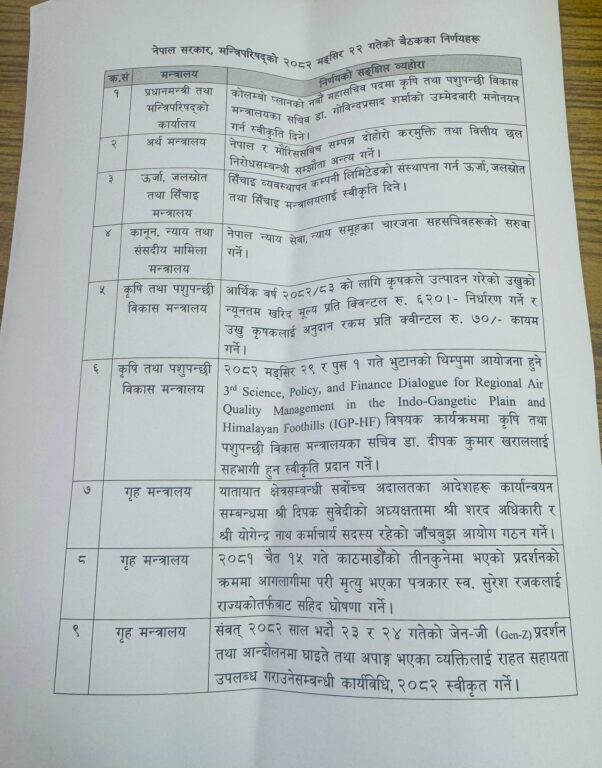 नेपाल सरकार, मन्त्रिपरिषद्को २०८२ मङ्सिर २२ गतेको बैठकका निर्णयहरू
क्र.सं
मन्त्रालय
निर्णयको सङ्क्षिप्त व्यहोरा
१
प्रधानमन्त्री तथा
मन्त्रिपरिषद्को
कार्यालय
कोलम्बो प्लानको नवौं महासचिव पदमा कृषि तथा पशुपन्छी विकास
मन्त्रालयका सचिव डा. गोविन्दप्रसाद शर्माको उम्मेदवारी मनोनयन
गर्न स्वीकृति दिने।
२
अर्थ मन्त्रालय
नेपाल र मौरिससबिच सम्पन्न दोहोरो करमुक्ति तथा वित्तीय छल
निरोधसम्बन्धी सम्झौता अन्त्य गर्ने।
३
ऊर्जा, जलस्रोत
तथा सिँचाइ
मन्त्रालय
सिँचाइ व्यवस्थापन कम्पनी लिमिटेडको संस्थापना गर्न ऊर्जा, जलस्रोत
तथा सिँचाइ मन्त्रालयलाई स्वीकृति दिने।
४
कानून, न्याय तथा
संसदीय मामिला
मन्त्रालय
नेपाल न्याय सेवा, न्याय समूहका चारजना सहसचिवहरूको सरुवा
गर्ने।
५
कृषि तथा पशुपन्छी
विकास मन्त्रालय
आर्थिक वर्ष २०८२/८३ को लागि कृषकले उत्पादन गरेको उखुको
न्यूनतम खरिद मूल्य प्रति क्विन्टल रु. ६२०।- निर्धारण गर्ने र
उखु कृषकलाई अनुदान रकम प्रति क्वीन्टल रु. ७०/- कायम
गर्ने।
६
कृषि तथा पशुपन्छी
विकास मन्त्रालय
२०८२ मङ्सिर २९ र पुस १ गते भुटानको थिम्पुमा आयोजना हुने
3rd Science, Policy, and Finance Dialogue for Regional Air
Quality Management in the Indo-Gangetic Plain and
Himalayan Foothills (IGP-HF) विषयक कार्यक्रममा कृषि तथा
पशुपन्छी विकास मन्त्रालयका सचिव डा. दीपक कुमार खराललाई
सहभागी हुन स्वीकृति प्रदान गर्ने।
७
गृह मन्त्रालय
यातायात क्षेत्रसम्बन्धी सर्वोच्च अदालतका आदेशहरू कार्यान्वयन
सम्बन्धमा श्री दिपक सुवेदीको अध्यक्षतामा श्री शरद अधिकारी र
श्री योगेन्द्र नाथ कर्माचार्य सदस्य रहेको जाँचबुझ आयोग गठन गर्ने।
८
गृह मन्त्रालय
२०८१ चैत १५ गते काठमाडौंको तीनकुनेमा भएको प्रदर्शनको
क्रममा आगलागीमा परी मृत्यु भएका पत्रकार स्व. सुरेश रजकलाई
राज्यकोतर्फबाट सहिद घोषणा गर्ने।
९
गृह मन्त्रालय
संवत् २०८२ साल भदौ २३ र २४ गतेको जेन-जी (Gen-Z) प्रदर्शन
तथा आन्दोलनमा घाइते तथा अपाङ्ग भएका व्यक्तिलाई राहत सहायता
उपलब्ध गराउनेसम्बन्धी कार्यविधि, २०८२ स्वीकृत गर्ने।